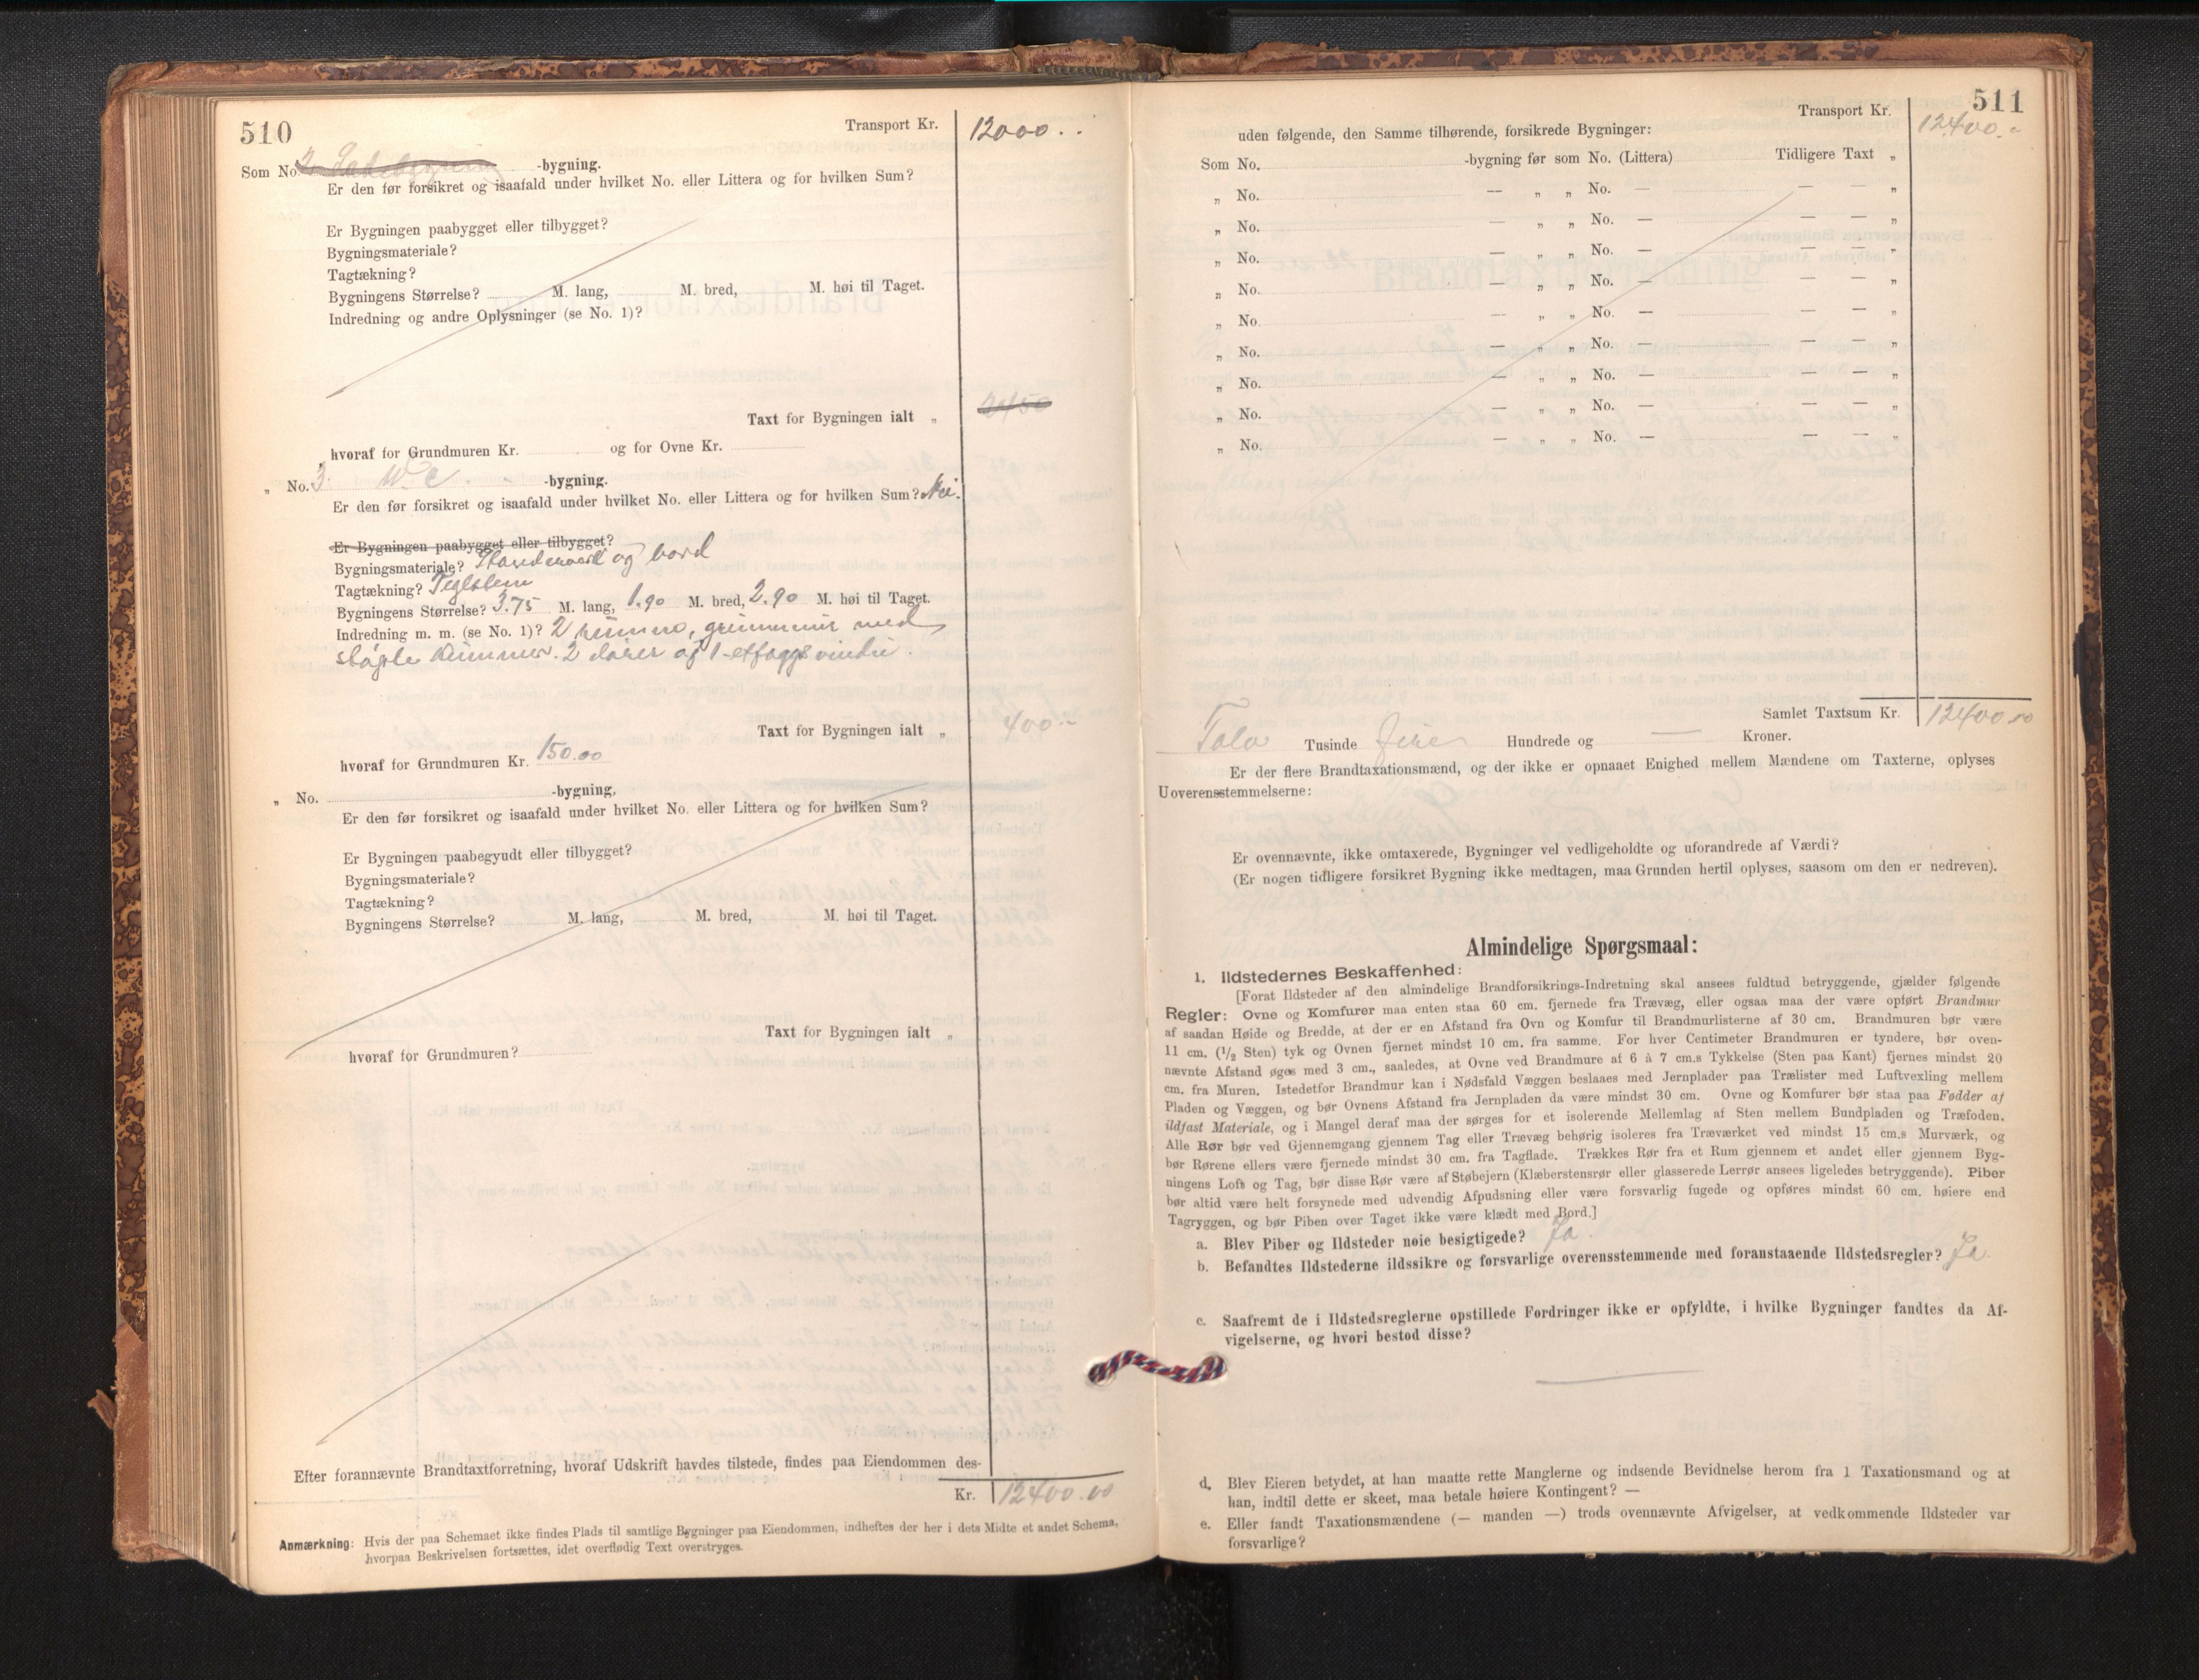 510
Transport Kr. 12000..
Som No. 2. Ladebygning -bygning.
Er den før forsikret og isaafald under hvilket No. eller Littera og for hvilken Sum?
Er Bygningen paabygget eller tilbygget?
Bygningsmateriale?
Tagtækning?
Bygningens Størrelse? M. lang, M. bred, M. høi til Taget.
Indredning og andre Oplysninger (se No. 1)?
Taxt for Bygningen ialt „ 2450
hvoraf for Grundmuren Kr. og for Ovne Kr.
„ No. 3. W.c. -bygning.
Er den før forsikret og isaafald under hvilket No. eller Littera og for hvilken Sum? Nei.
Er Bygningen paabygget eller tilbygget?
Bygningsmateriale? og bord
Tagtækning? Teglsten
Bygningens Størrelse? 3.75 M. lang, 1.90 M. bred, 2.90 M. høi til Taget.
Indredning m. m. (se No. 1)? 2 rumma, grunnmur med
støpte kummer. 2 dører og 1 etfaggs vindu.
Taxt for Bygningen ialt „ 400.-
hvoraf for Grundmuren Kr. 150.00
„ No. -bygning.
Er den før forsikret og isaafald under hvilket No. eller Littera og for hvilken Sum?
Er Bygningen paabegyndt eller tilbygget?
Bygningsmateriale?
Tagtækning?
Bygningens Størrelse? M. lang, M. bred, M. høi til Taget.
Taxt for Bygningen ialt „
hvoraf for Grundmuren?
Efter forannævnte Brandtaxtforretning, hvoraf Udskrift havdes tilstede, findes paa Eiendommen des-
Kr. 12400.00
Anmærkning: Hvis der paa Schemaet ikke findes Plads til samtlige Bygninger paa Eiendommen, indheftes der her i dets Midte et andet Schema,
hvorpaa Beskrivelsen fortsættes, idet overflødig Text overstryges.
511
Transport Kr. 12400.-
uden følgende, den Samme tilhørende, forsikrede Bygninger:
Som No. -bygning før som No. (Littera) Tidligere Taxt „
„ No. — „ „ No. — — — „
„ No. — „ „ No. — — — „
„ No. — „ „ No. — — — „
„ No. — „ „ No. — — — „
„ No. — „ „ No. — — — „
„ No. — „ „ No. — — — „
„ No. — „ „ No. — — — „
„ No. — „ „ No. — — — „
„ No. — „ „ No. — — — „
Samlet Taxtsum Kr. 12400.00
Tolv Tusinde fire Hundrede og — Kroner.
Er der flere Brandtaxationsmænd, og der ikke er opnaaet Enighed mellem Mændene om Taxterne, oplyses
Uoverensstemmelserne:
Er ovennævnte, ikke omtaxerede, Bygninger vel vedligeholdte og uforandrede af Værdi?
(Er nogen tidligere forsikret Bygning ikke medtagen, maa Grunden hertil oplyses, saasom om den er nedreven).
Almindelige Spørgsmaal:
1. Ildstedernes Beskaffenhed:
[Forat Ildsteder af den almindelige Brandforsikrings-Indretning skal ansees fuldtud betryggende, gjælder følgende
Regler: Ovne og Komfurer maa enten staa 60 cm. fjernede fra Trævæg, eller ogsaa maa der være opført Brandmur
af saadan Høide og Bredde, at der er en Afstand fra Ovn og Komfur til Brandmurlisterne af 30 cm. Brandmuren bør være
11 cm. (1/2 Sten) tyk og Ovnen fjernet mindst 10 cm. fra samme. For hver Centimeter Brandmuren er tyndere, bør oven-
nævnte Afstand øges med 3 cm., saaledes, at Ovne ved Brandmure af 6 à 7 cm.s Tykkelse (Sten paa Kant) fjernes mindst 20
cm. fra Muren. Istedetfor Brandmur kan i Nødsfald Væggen beslaaes med Jernplader paa Trælister med Luftvexling mellem
Pladen og Væggen, og bør Ovnens Afstand fra Jernpladen da være mindst 30 cm. Ovne og Komfurer bør staa paa Fødder af
ildfast Materiale, og i Mangel deraf maa der sørges for et isolerende Mellemlag af Sten mellem Bundpladen og Træfoden.
Alle Rør bør ved Gjennemgang gjennem Tag eller Trævæg behørig isoleres fra Træværket ved mindst 15 cm.s Murværk, og
bør Rørene ellers være fjernede mindst 30 cm. fra Tagflade. Trækkes Rør fra et Rum gjennem et andet eller gjennem Byg-
ningens Loft og Tag, bør disse Rør være af Støbejern (Klæberstensrør eller glasserede Lerrør ansees ligeledes betryggende). Piber
bør altid være helt forsynede med udvendig Afpudsning eller være forsvarlig fugede og opføres mindst 60 cm. høiere end
Tagryggen, og bør Piben over Taget ikke være klædt med Bord.]
a. Blev Piber og Ildsteder nøie besigtigede? Ja.
b. Befandtes Ildstederne ildssikre og forsvarlige overensstemmende med foranstaaende Ildstedsregler? Ja.
c. Saafremt de i Ildstedsreglerne opstillede Fordringer ikke er opfyldte, i hvilke Bygninger fandtes da Af-
vigelserne, og hvori bestod disse?
d. Blev Eieren betydet, at han maatte rette Manglerne og indsende Bevidnelse herom fra 1 Taxationsmand og at
han, indtil dette er skeet, maa betale høiere Kontingent? —
e. Eller fandt Taxationsmændene (— manden —) trods ovennævnte Afvigelser, at vedkommende Ildsteder var
forsvarlige?